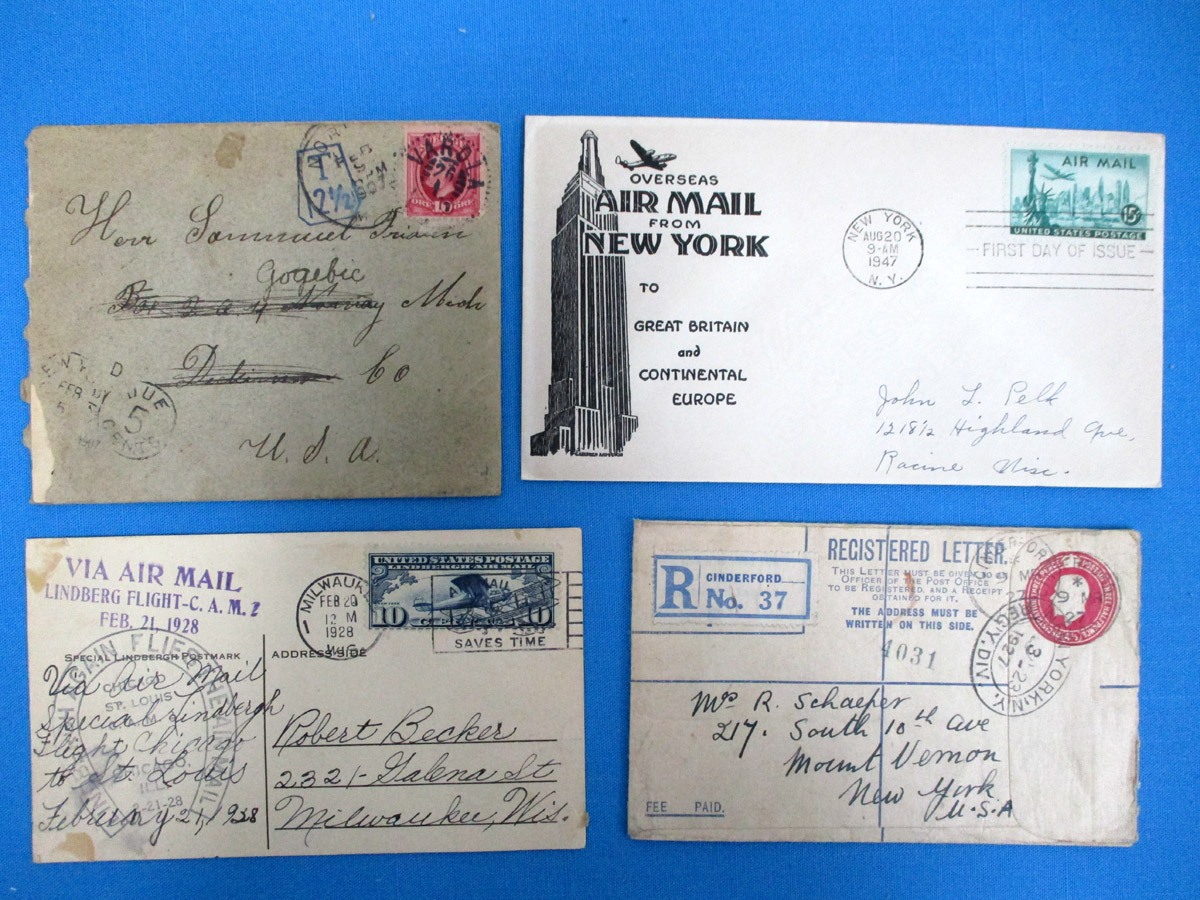 T
12½
VAROTA
ORE 10
Herr Sammuel
Gogebic
Mich
Co
U. S. A.
DUE
5
CENTS
FEB
OVERSEAS
AIR MAIL
FROM
NEW YORK
TO
GREAT BRITAIN
and
CONTINENTAL
EUROPE
NEW YORK
AUG 20
9-AM
1947
N.Y.
AIR MAIL
15¢
UNITED STATES POSTAGE
FIRST DAY OF ISSUE
John L. Pelk
1218½ Highland Ave,
Racine Wisc.
VIA AIR MAIL
LINDBERG FLIGHT-C. A. M. 2
FEB. 21, 1928
SPECIAL LINDBERGH POSTMARK
AGAIN FLIES THE AIR MAIL
CHICAGO
ST. LOUIS
CHICAGO.
ILL.
2-21-28
Via Air Mail
Special Lindbergh
Flight Chicago
to St. Louis
February 21, 1928
ADDRESS SIDE
MILWAUKEE
FEB 20
12 M
1928
WIS.
UNITED STATES POSTAGE
LINDBERGH AIR MAIL
10 CENTS 10
SAVES TIME
Robert Becker
2321-Galena St
Milwaukee, Wis.
R
CINDERFORD
No. 37
REGISTERED LETTER.
THIS LETTER MUST BE GIVEN TO AN
OFFICER OF THE POST OFFICE
TO BE REGISTERED, AND A RECEIPT
OBTAINED FOR IT.
THE ADDRESS MUST BE
WRITTEN ON THIS SIDE.
4031
REG'Y. DIV.
3-23
1927
YORK, N.Y.
Mrs R. Schaefer
217. South 10th Ave
Mount Vernon
New York
U.S.A
FEE PAID.